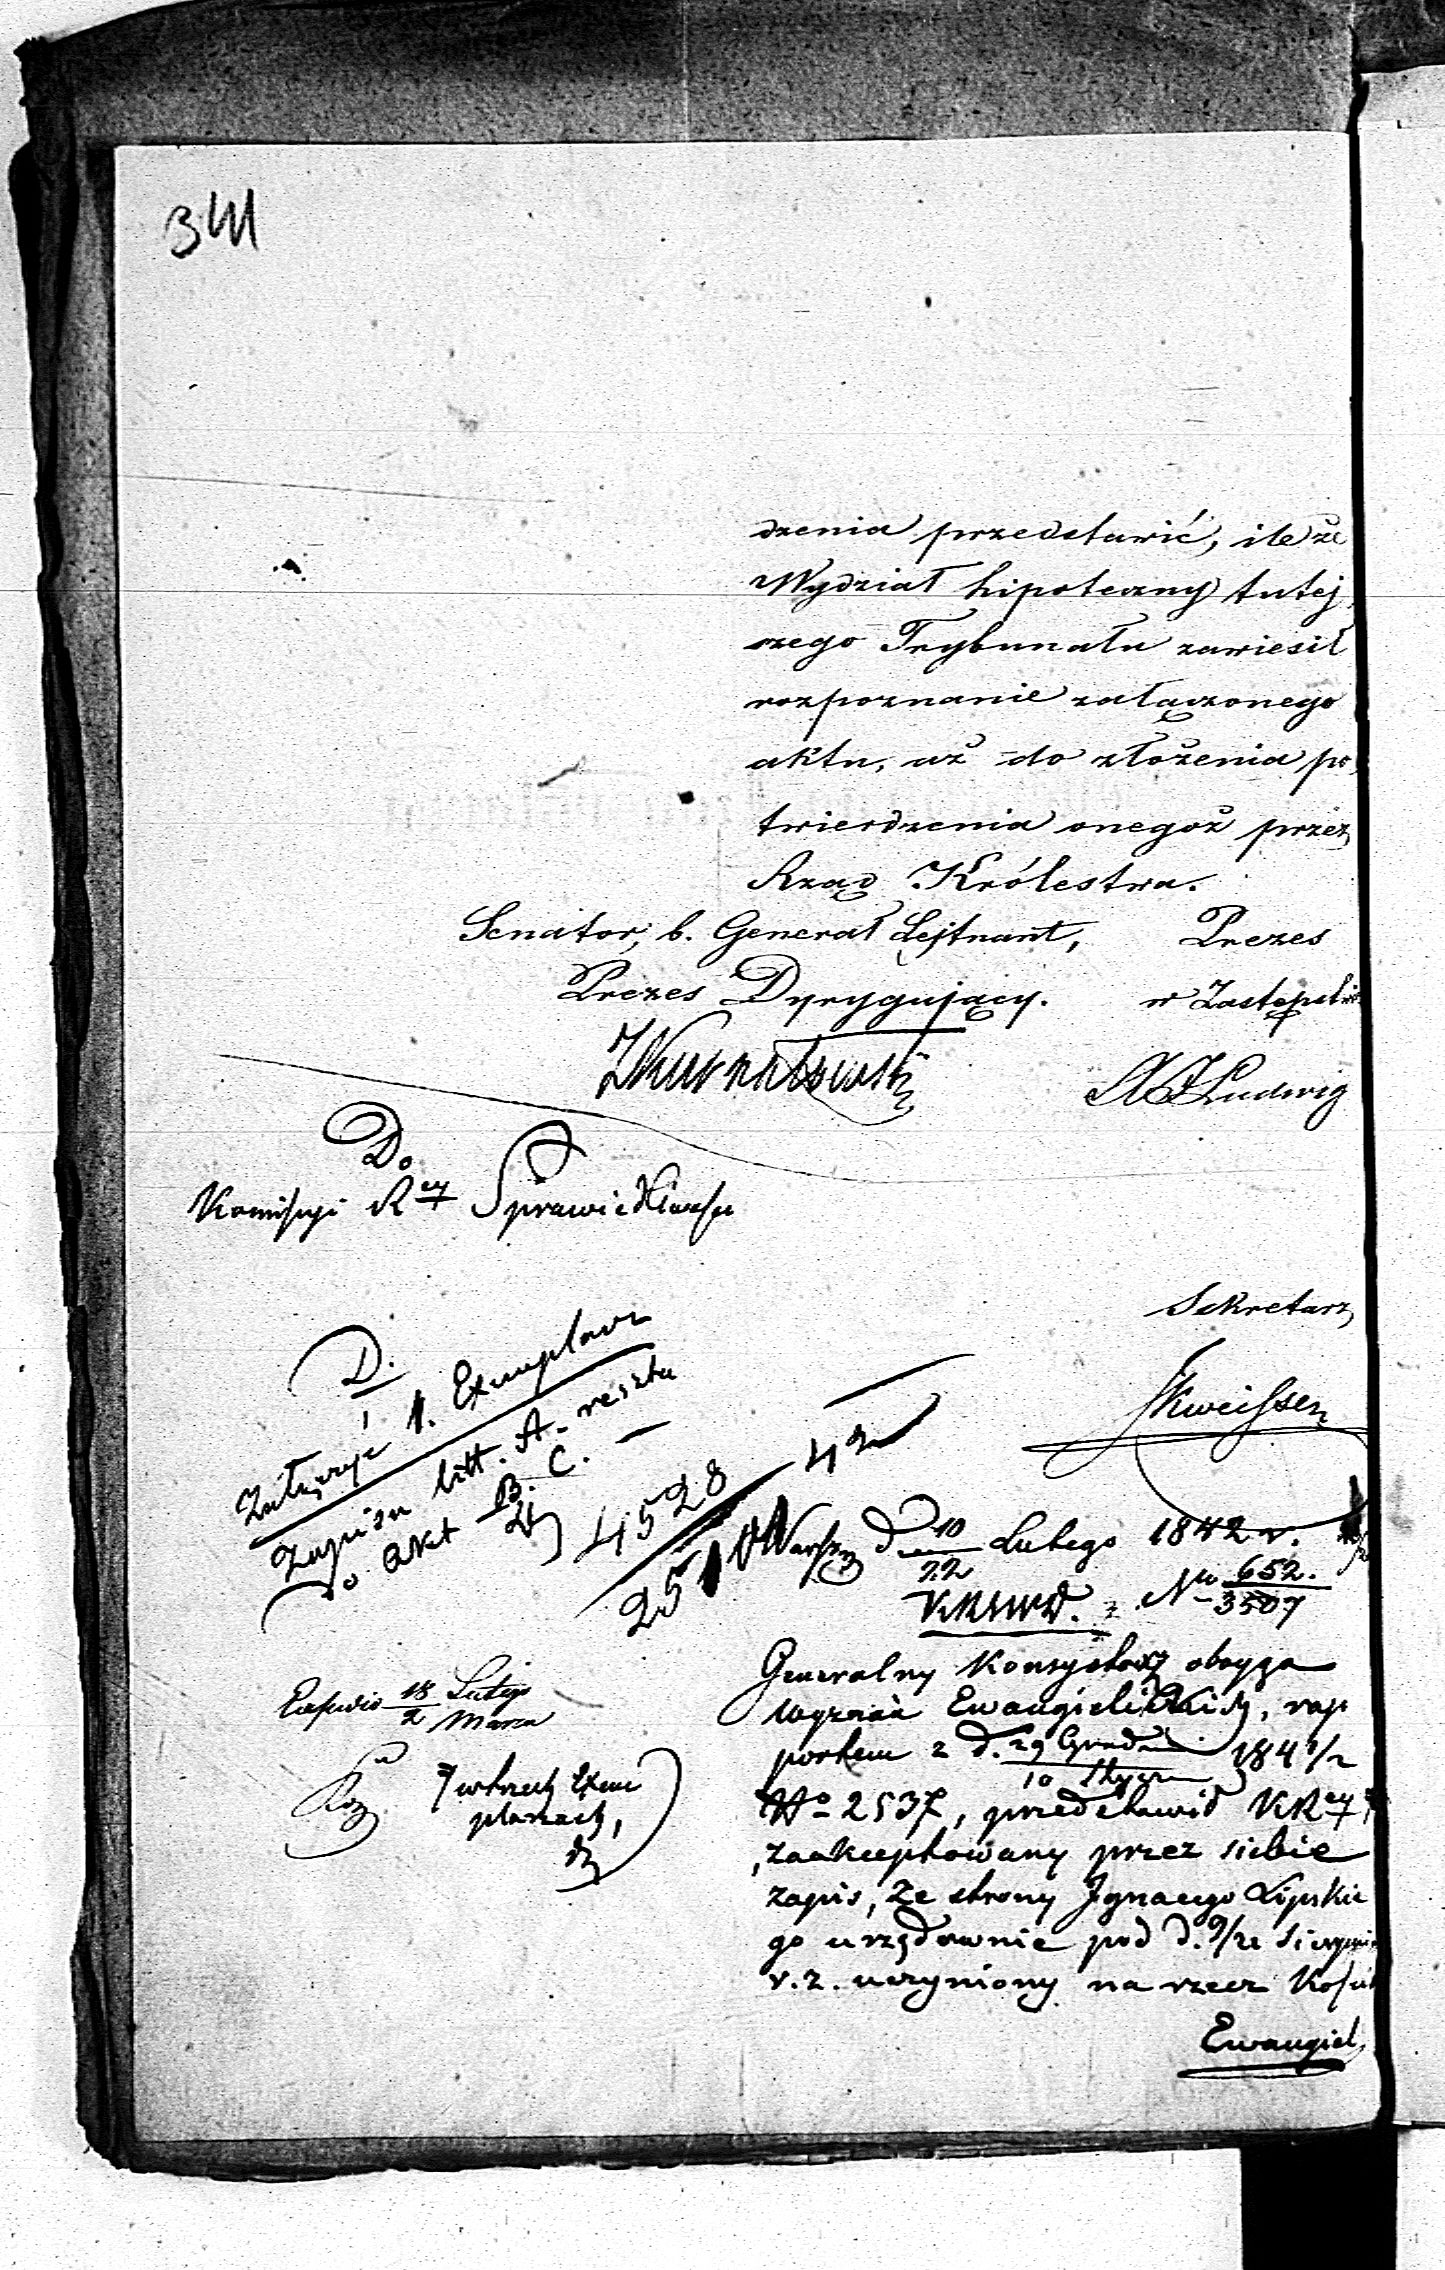 341
dzenia przedstawić, ile że
Wydział hipoteczny tutej
szego Trybunału zawiesił
rozpoznanie załączonego
aktu, aż do złożenia po
twierdzenia onegoż przez
Rząd Królestwa.
Senator, b. Generał Lejtnant, Prezes
Prezes Dyrygujący. w Zastępstwie
AJLudwig
Do
Komisyi R Sprawiedliwości
Sekretarz
D.
Załączyć 1. Exemplarz
Zapisu litt. A. reszta
do akt B. C.
4528 42
251
Warsz d. 10/22 Lutego 1842 r.
No 652./3507
Generalny Konsystorz obojga
Wyznań Ewangielickich, rap
portem z d. 29 Grud/10 Stycz 1841/2
No 2537, przedstawił KR
zaakceptowany przez siebie
zapis, ze strony Ignacego Lipskie
go urzędownie pod d. 9/21 Sierpnia
r. z. uczyniony na rzecz Kości
Ewangiel
18/2 Lutego/Marca
w trzech Exem
plarzach,